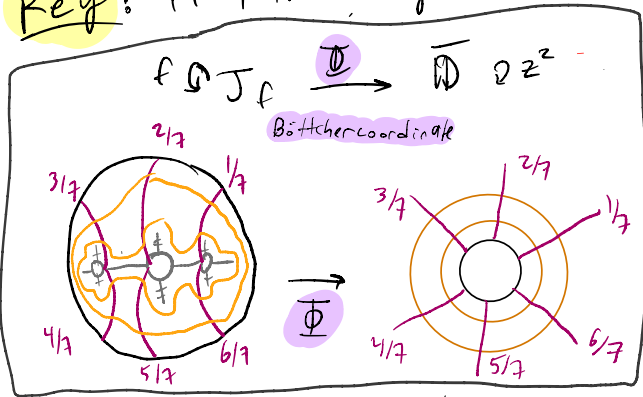 Key:
f ↻ J_f → 𝔻̄ ↻ z²
Φ
Böttcher coordinate
2/7
3/7 1/7
4/7 5/7 6/7
Φ
2/7
3/7 1/7
4/7 5/7 6/7